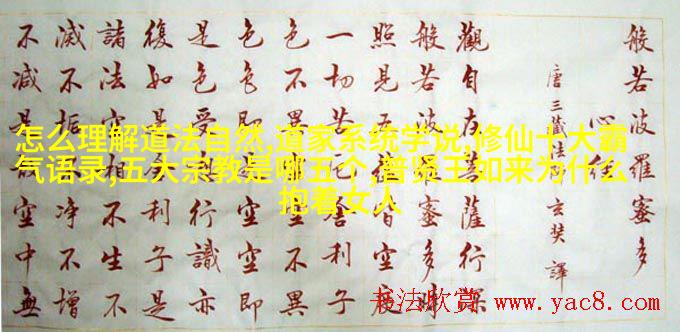 怎么理解道法自然,道家系统学说,修仙十大霸
气语录,五大宗教是哪五个,普贤王如来为什么
抱着女人
般若波羅蜜多
心经
唐三藏法師玄奘譯
觀自在菩薩行深
般若波羅蜜多時
照見五蘊皆空度
一切苦厄舍利子
色不異空空不異
色色即是空空即
是色受想行識亦
復如是舍利子是
諸法空相不生不
滅不垢不淨不增
不減是故空中無
书法欣赏 www.yac8.com